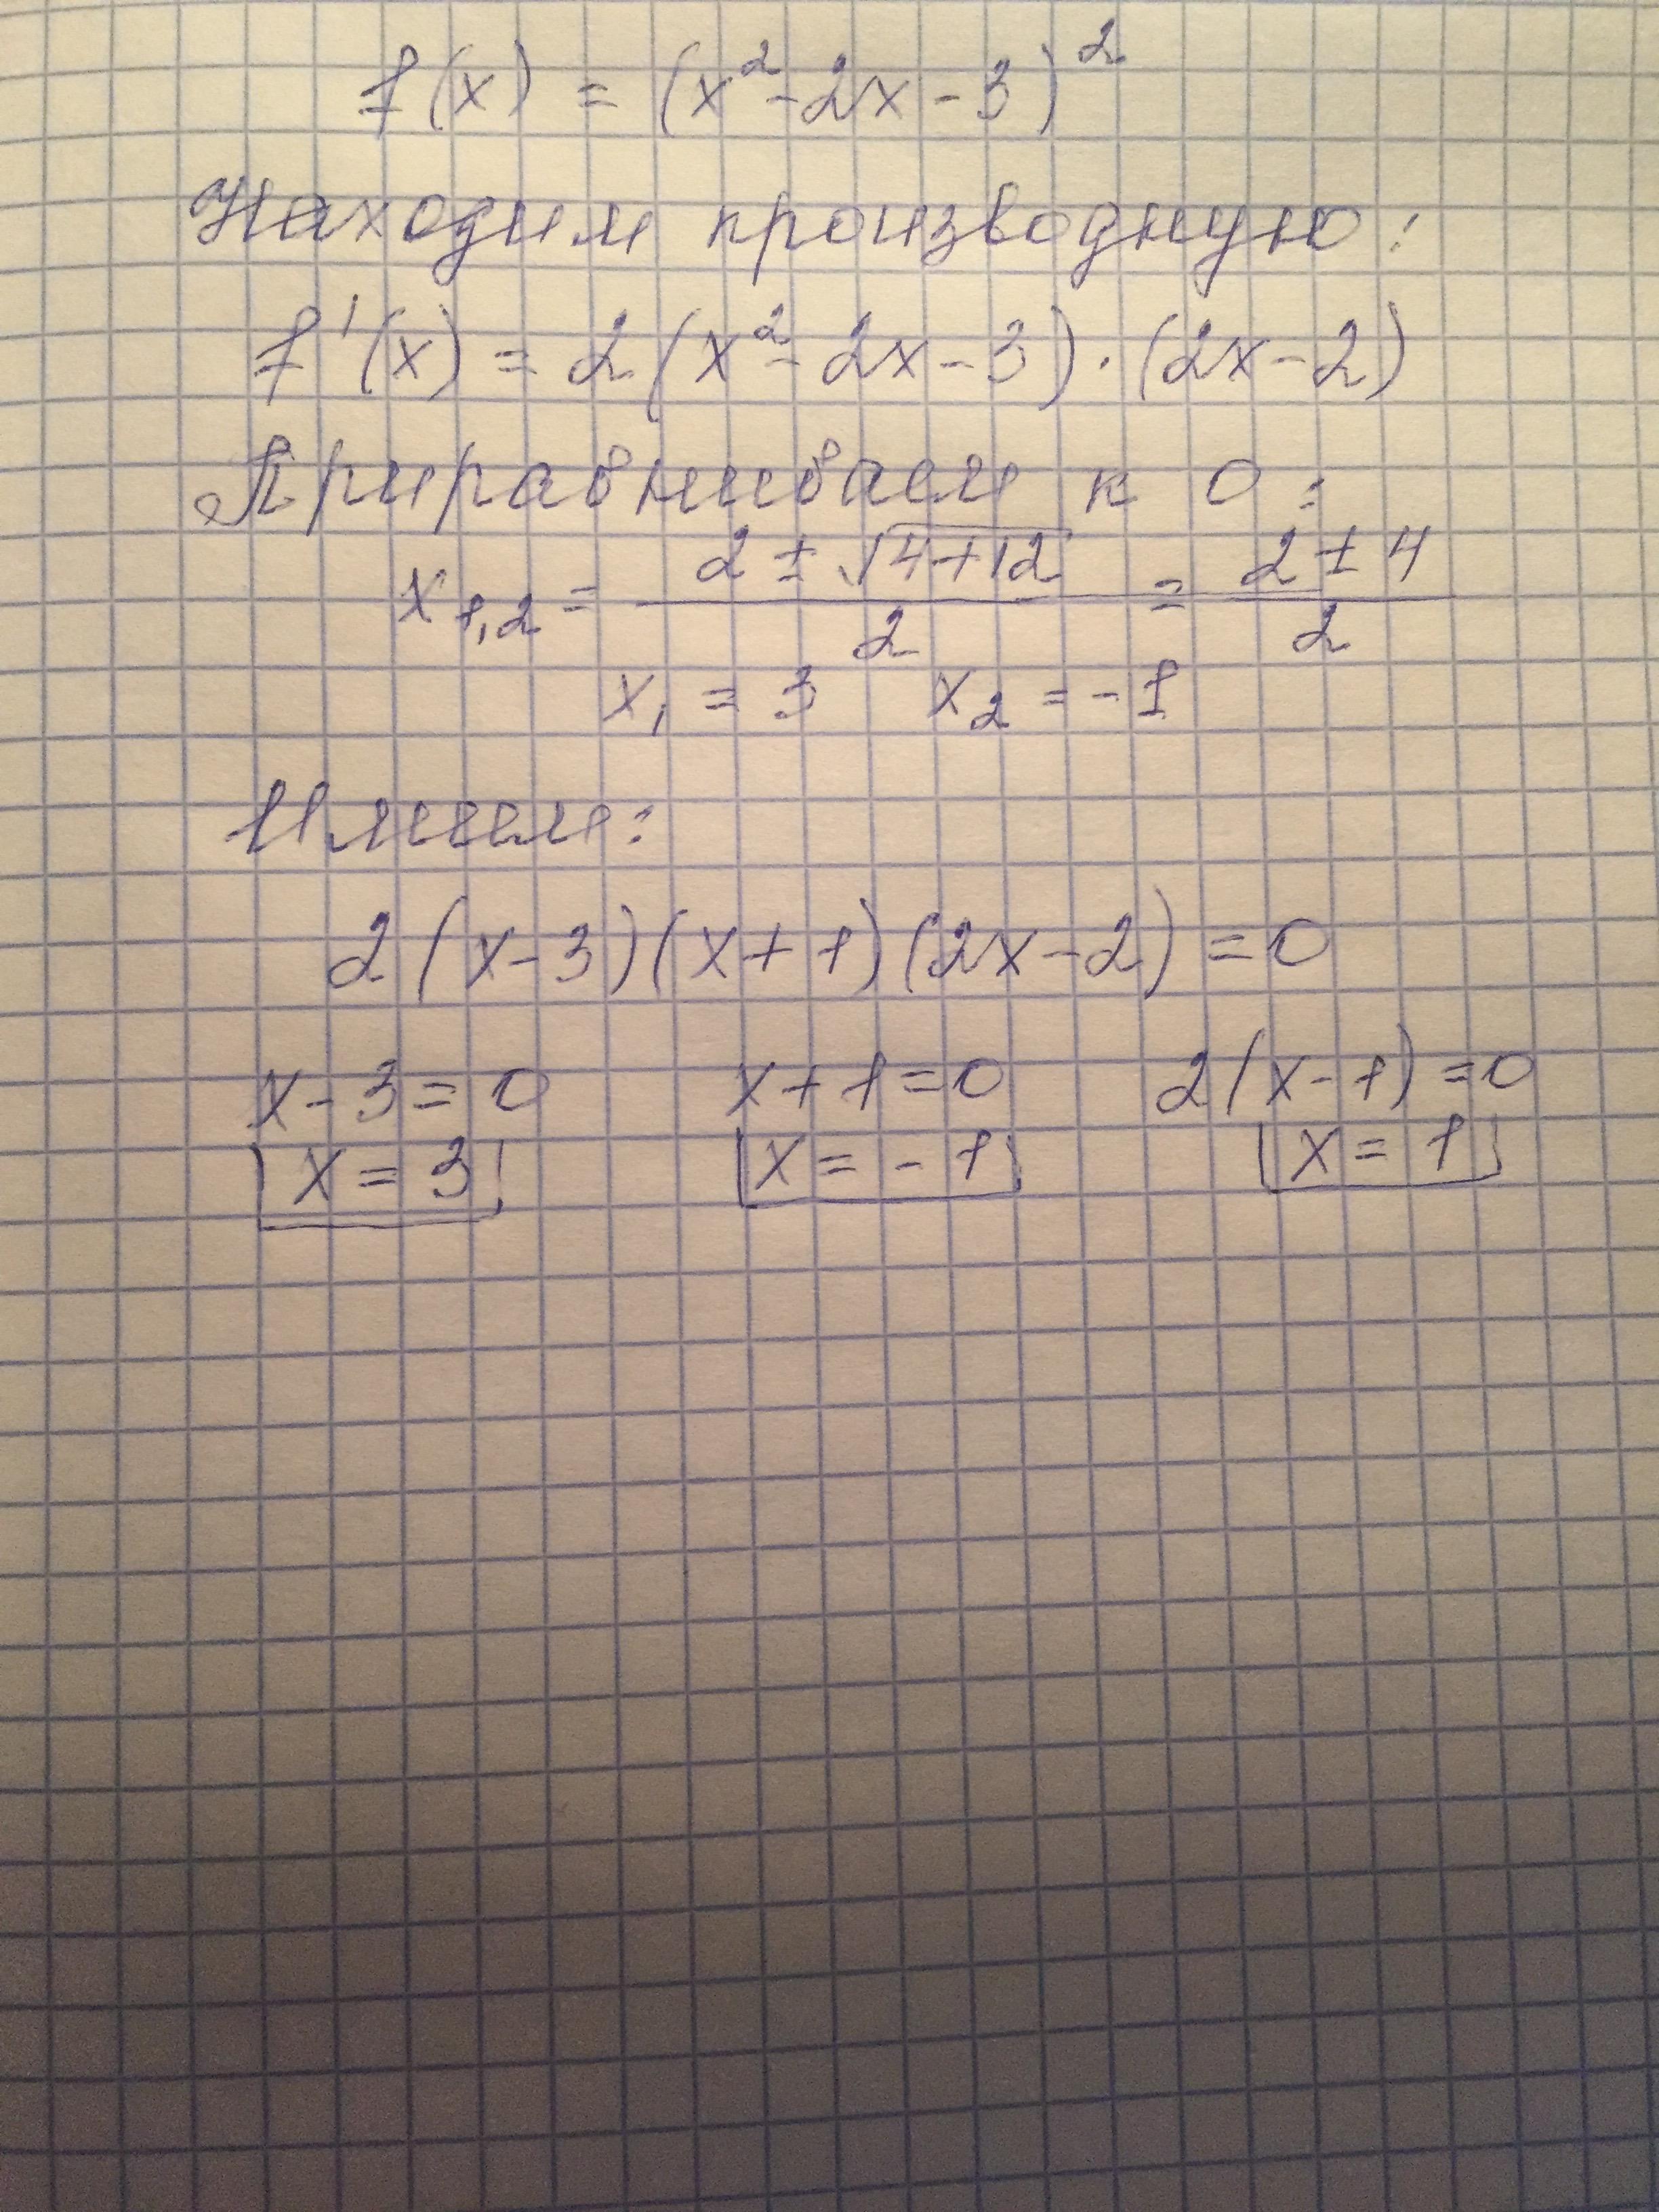 f(x) = (x² - 2x - 3)²
Находим производную:
f'(x) = 2(x² - 2x - 3) · (2x - 2)
Приравниваем к 0:
x₁,₂ = (2 ± √(4+12))/2 = (2 ± 4)/2
x₁ = 3 x₂ = -1
Имеем:
2(x-3)(x+1)(2x-2) = 0
x - 3 = 0 x + 1 = 0 2(x-1) = 0
x = 3 x = -1 x = 1